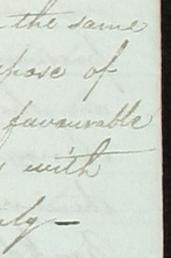 the same
pose of
favourable
with
ly —